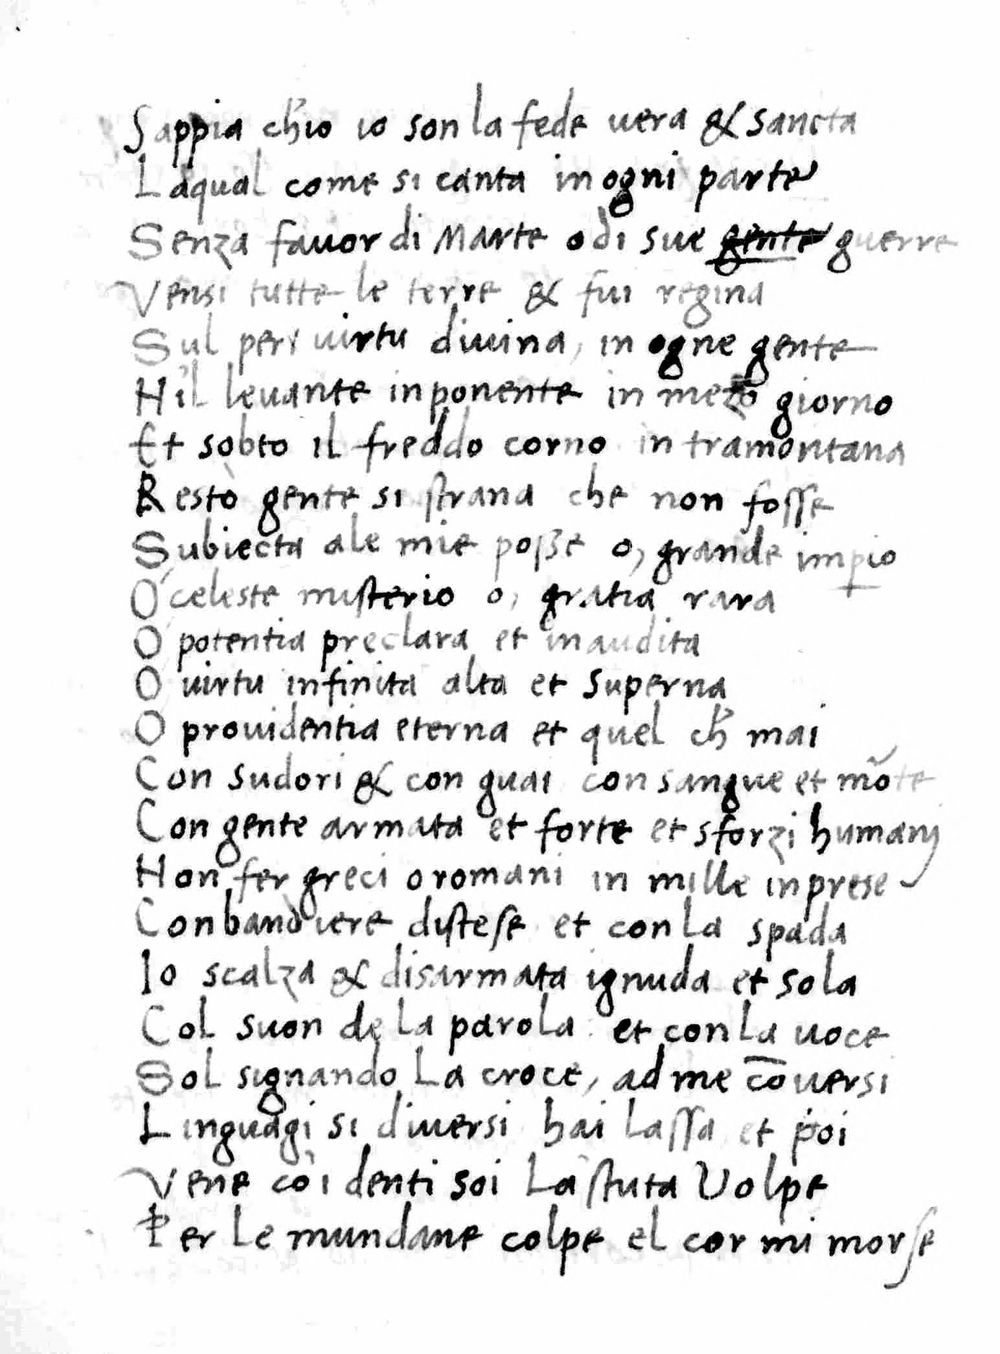 Sappia ch'io io son la fede vera & sancta
Laqual come si canta in ogni parte
Senza favor di Marte o di sue gente guerre
Vensi tutte le terre & fui regina
Sul per virtu divina, in ogne gente
Hil levante in ponente in mezo giorno
Et sobto il freddo corno in tramontana
Restò gente si strana che non fosse
Subiecta ale mie posse o, grande imperio
O celeste misterio o, gratia rara
O potentia preclara et inaudita
O virtu infinita alta et superna
O providentia eterna et quel ch' mai
Con sudori & con guai con sangue et mōte
Con gente armata et forte et sforzi humani
Non fer greci o romani in mille inprese
Con bandiere distese et con la spada
Io scalza & disarmata ignuda et sola
Col suon de la parola et con la uoce
Sol signando La croce, ad me cōversi
Linguagi si diversi hai lassa et poi
Vene coi denti soi La stuta Volpe
Per le mundane colpe el cor mi morse